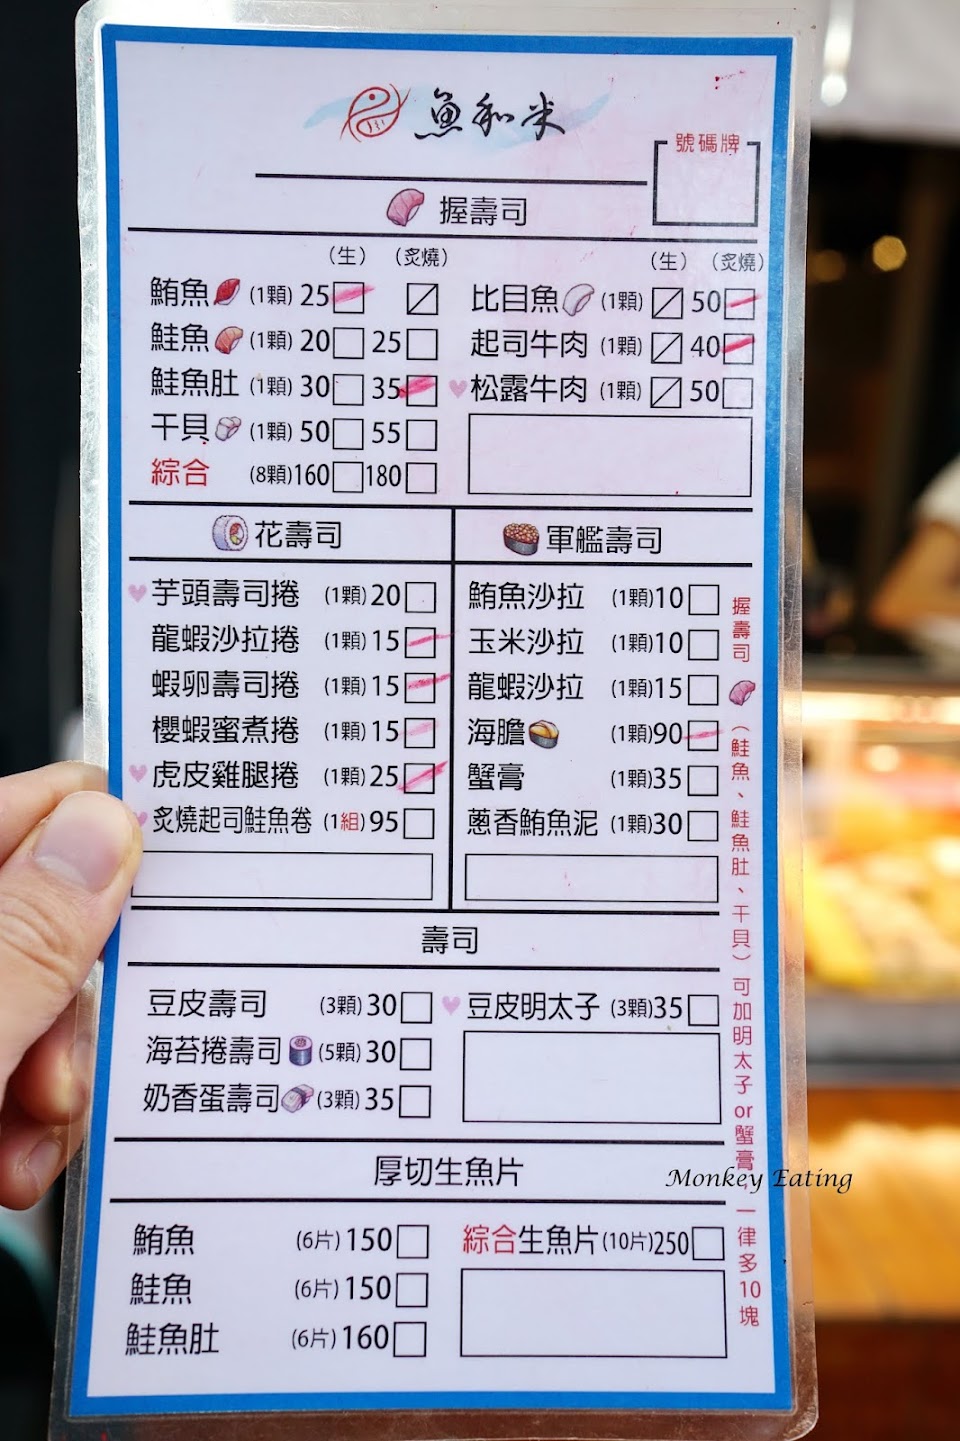 魚和米
號碼牌
握壽司
(生) (炙燒)
鮪魚 (1顆) 25
鮭魚 (1顆) 20 25
鮭魚肚 (1顆) 30 35
干貝 (1顆) 50 55
綜合 (8顆) 160 180
(生) (炙燒)
比目魚 (1顆) 50
起司牛肉 (1顆) 40
松露牛肉 (1顆) 50
花壽司
芋頭壽司捲 (1顆) 20
龍蝦沙拉捲 (1顆) 15
蝦卵壽司捲 (1顆) 15
櫻蝦蜜煮捲 (1顆) 15
虎皮雞腿捲 (1顆) 25
炙燒起司鮭魚卷 (1組) 95
軍艦壽司
鮪魚沙拉 (1顆) 10
玉米沙拉 (1顆) 10
龍蝦沙拉 (1顆) 15
海膽 (1顆) 90
蟹膏 (1顆) 35
蔥香鮪魚泥 (1顆) 30
握壽司(鮭魚、鮭魚肚、干貝)可加明太子or蟹膏,一律多10塊
壽司
豆皮壽司 (3顆) 30
海苔捲壽司 (5顆) 30
奶香蛋壽司 (3顆) 35
豆皮明太子 (3顆) 35
厚切生魚片
鮪魚 (6片) 150
鮭魚 (6片) 150
鮭魚肚 (6片) 160
綜合生魚片 (10片) 250
Monkey Eating